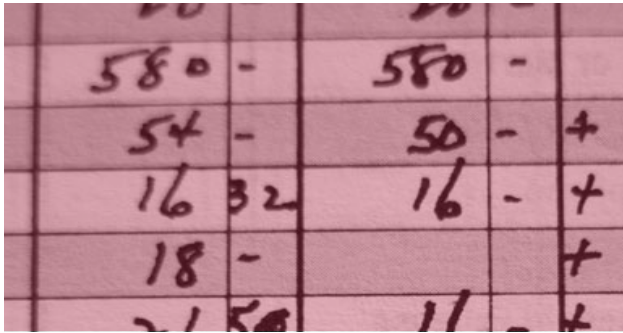 580 - 580 -
54 - 50 - +
16 32 16 - +
18 - +
21 50 11 - +